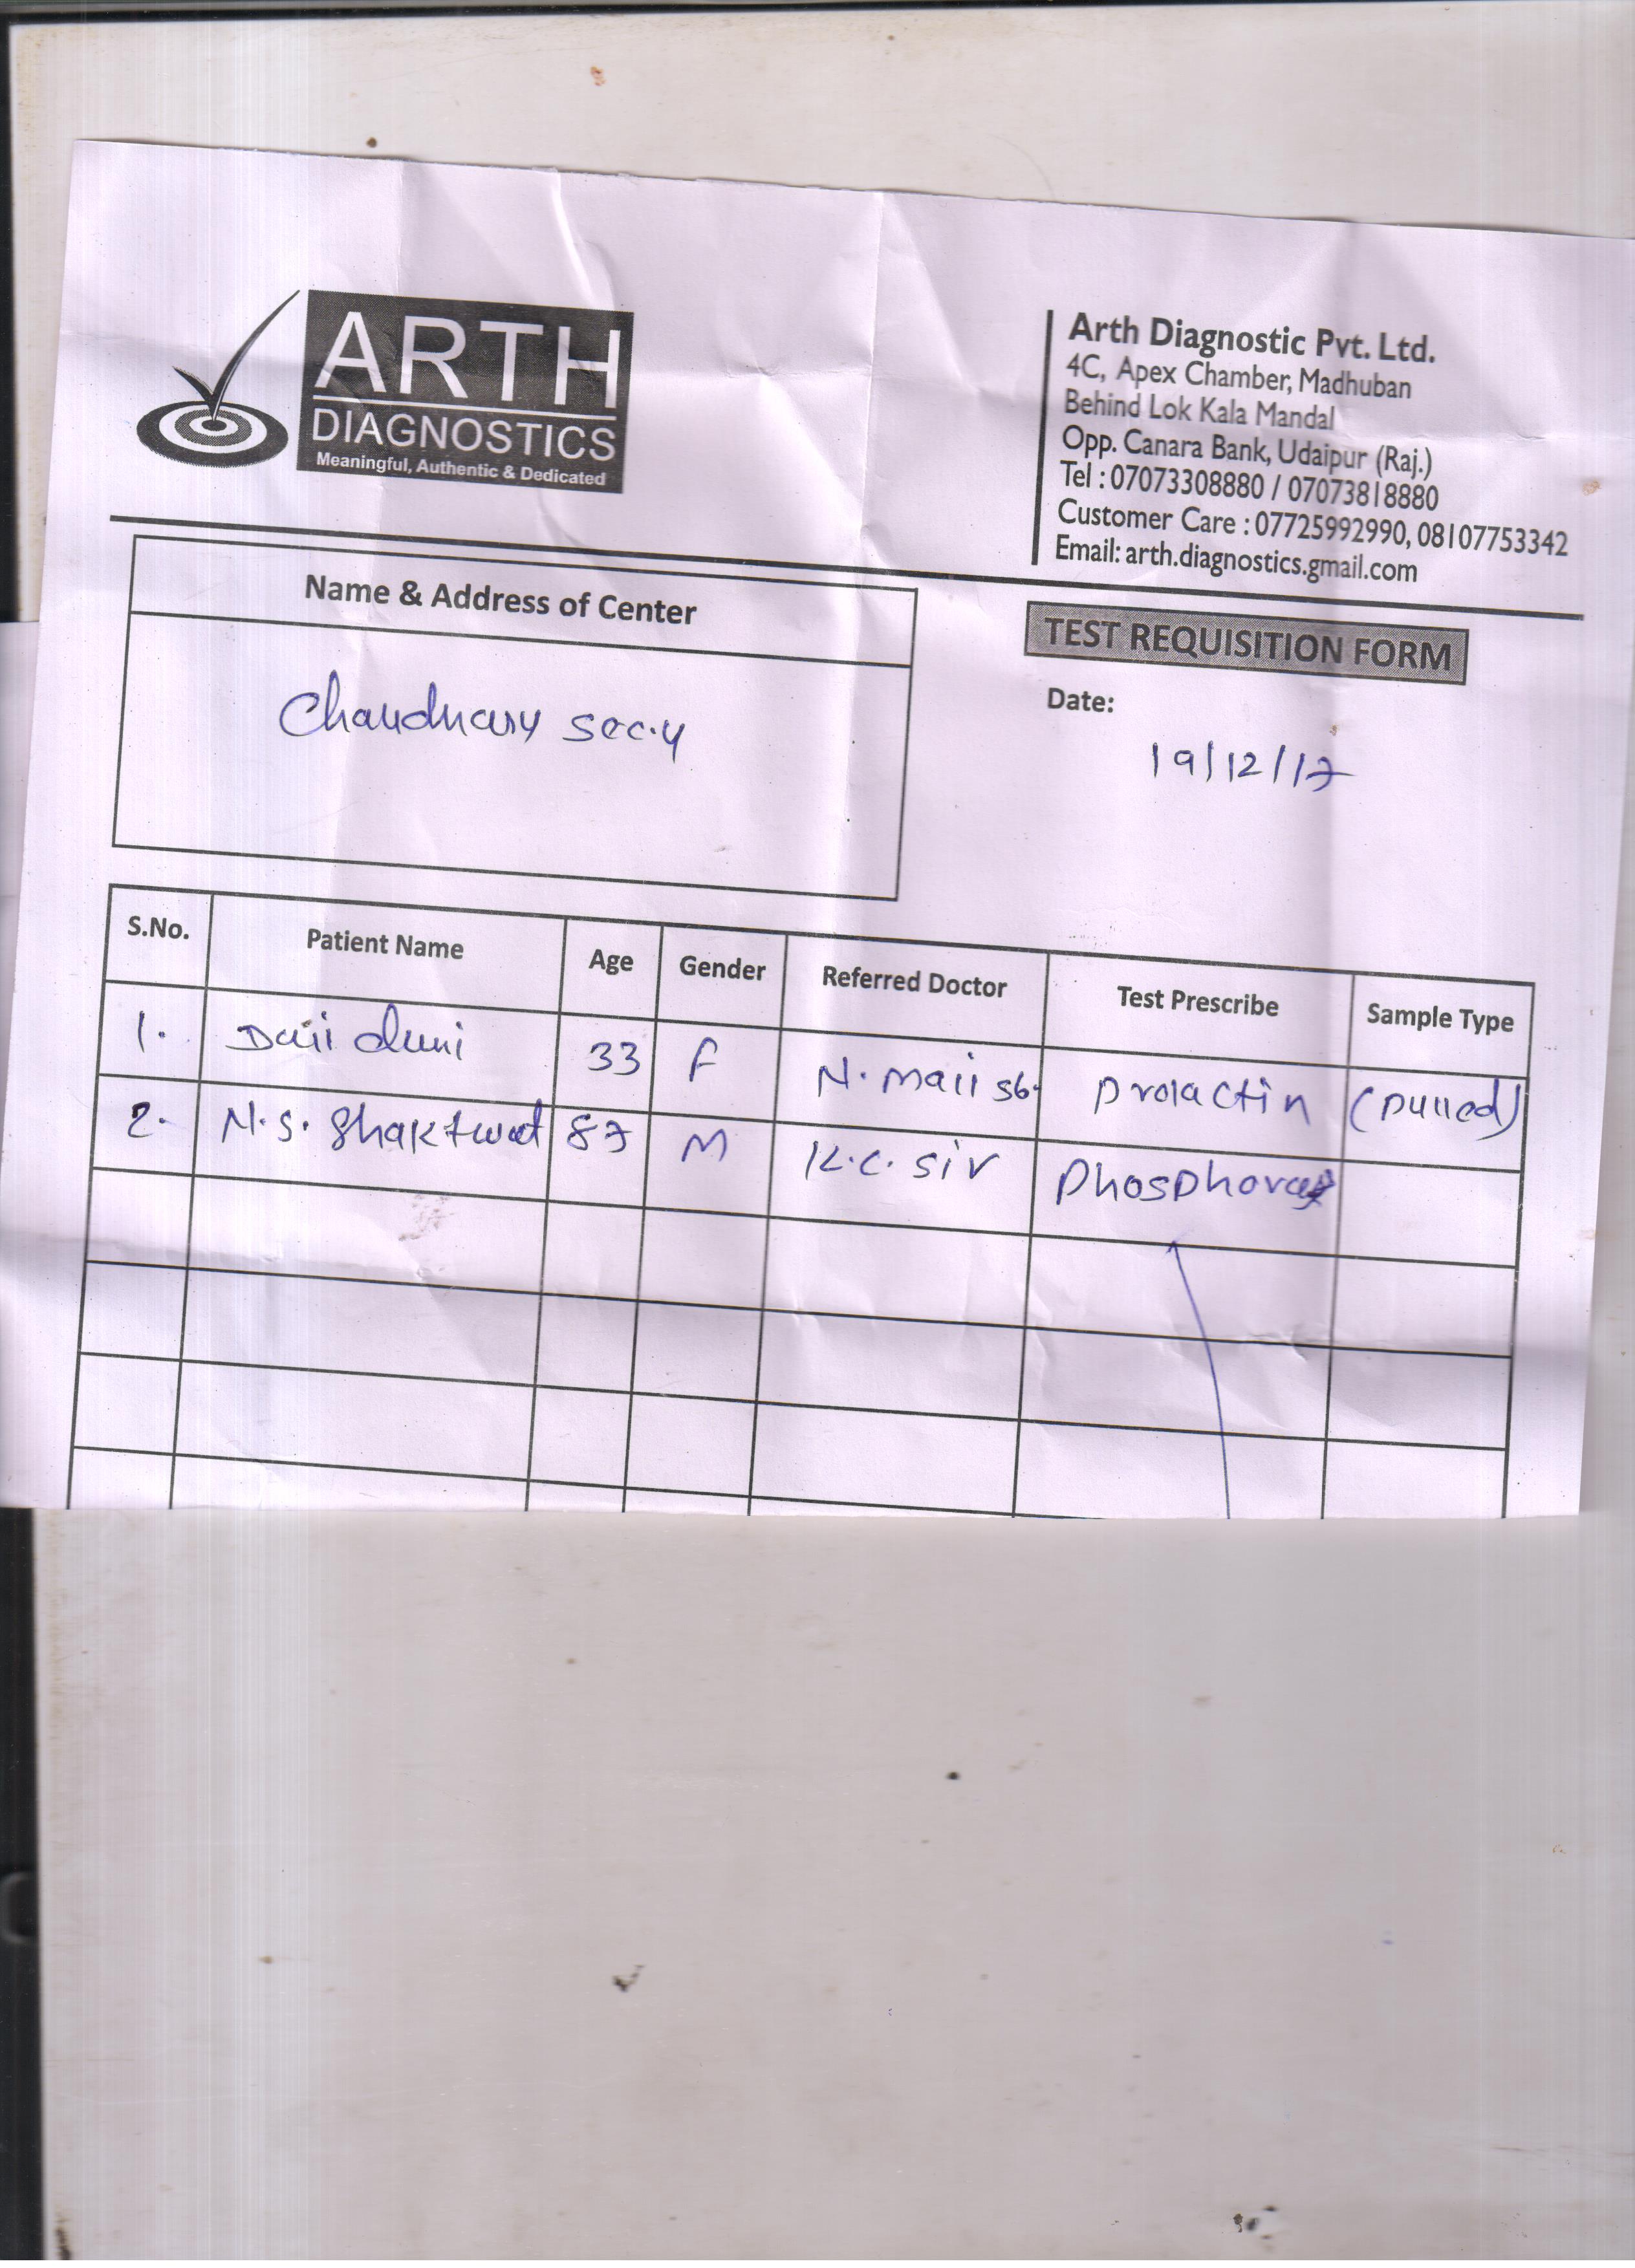 ARTH
DIAGNOSTICS
Meaningful, Authentic & Dedicated
Arth Diagnostic Pvt. Ltd.
4C, Apex Chamber, Madhuban
Behind Lok Kala Mandal
Opp. Canara Bank, Udaipur (Raj.)
Tel : 07073308880 / 07073818880
Customer Care : 07725992990, 08107753342
Email: arth.diagnostics.gmail.com
Name & Address of Center
TEST REQUISITION FORM
Chaudhary sec.4
Date:
19/12/17
S.No. Patient Name Age Gender Referred Doctor Test Prescribe Sample Type
1. 33 F N. Prolactin (Pulled)
2. N.S. 87 M K.C. Sir Phosphorus